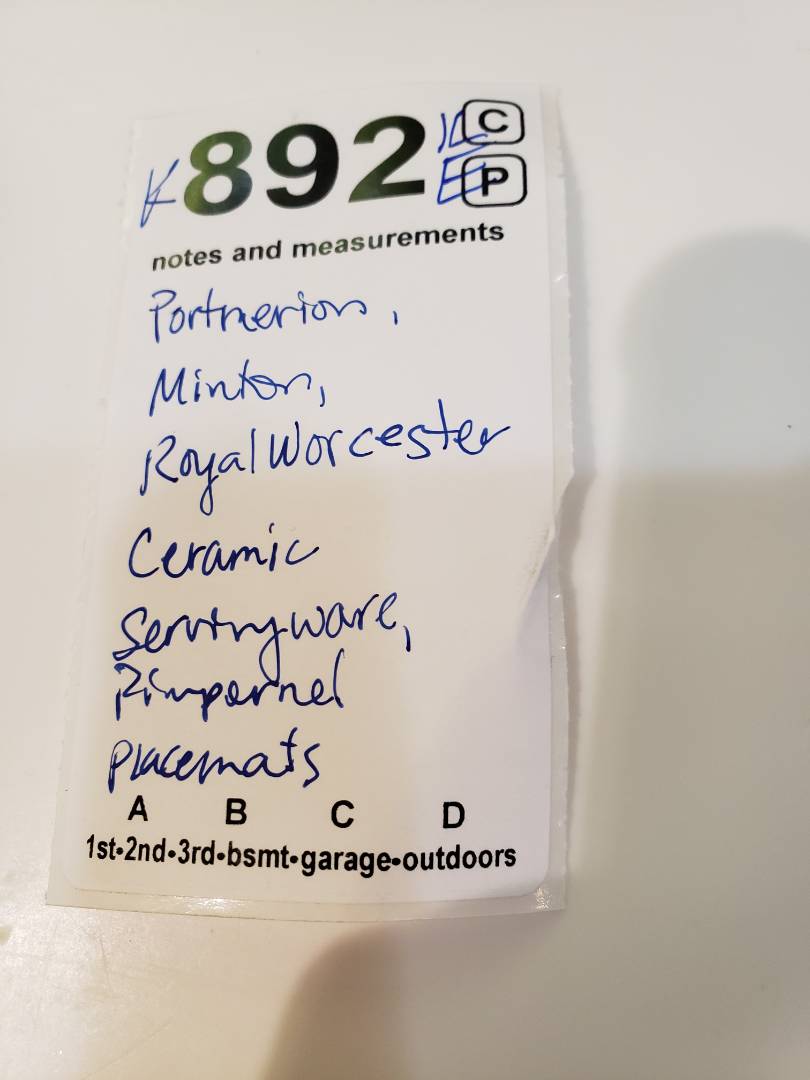 892 C
P
notes and measurements
Portmerion,
Minton,
Royal Worcester
Ceramic
Servingware,
Pimpernel
Placemats
A B C D
1st•2nd•3rd•bsmt•garage•outdoors